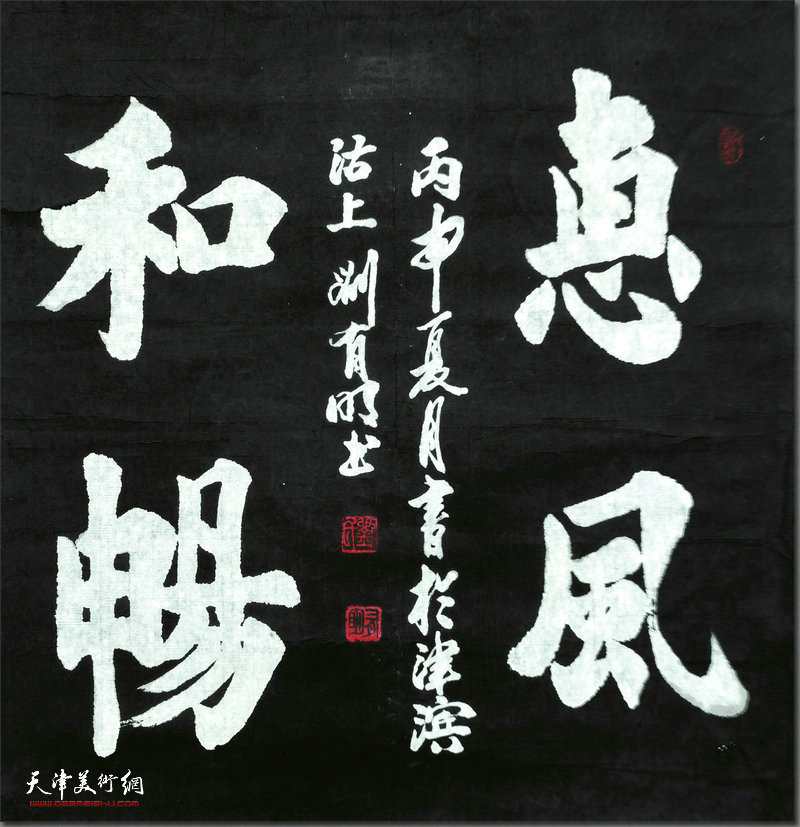 惠風
和暢
丙申夏月書於津濱
沽上劉有明书
天津美術網